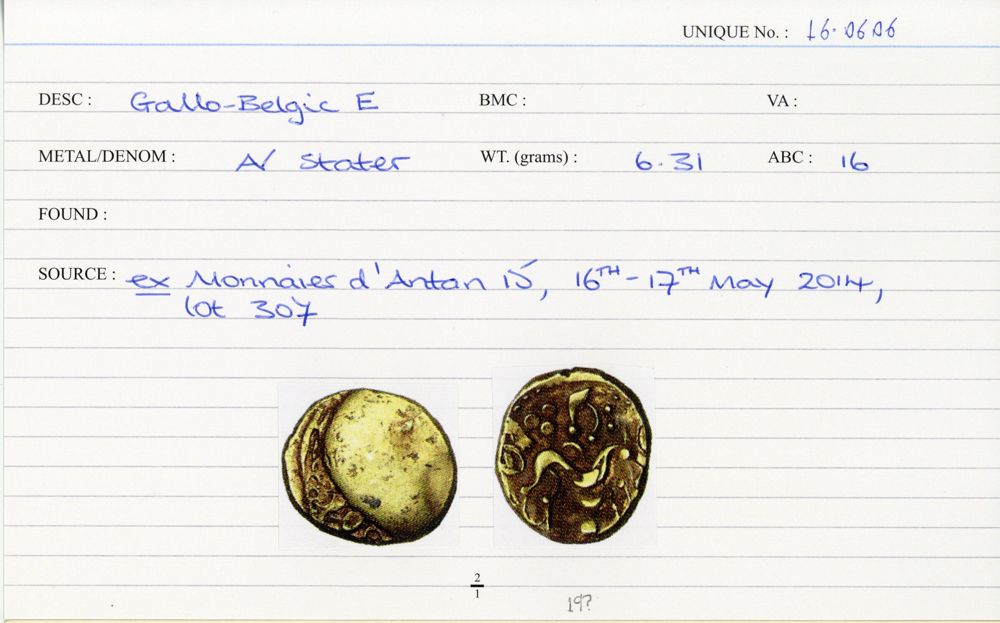 UNIQUE No. : 16.0606
DESC : Gallo-Belgic E BMC : VA :
METAL/DENOM : A/ Stater WT. (grams) : 6.31 ABC : 16
FOUND :
SOURCE : ex Monnaies d'Antan 15, 16TH-17TH May 2014,
lot 307
2/1
19?